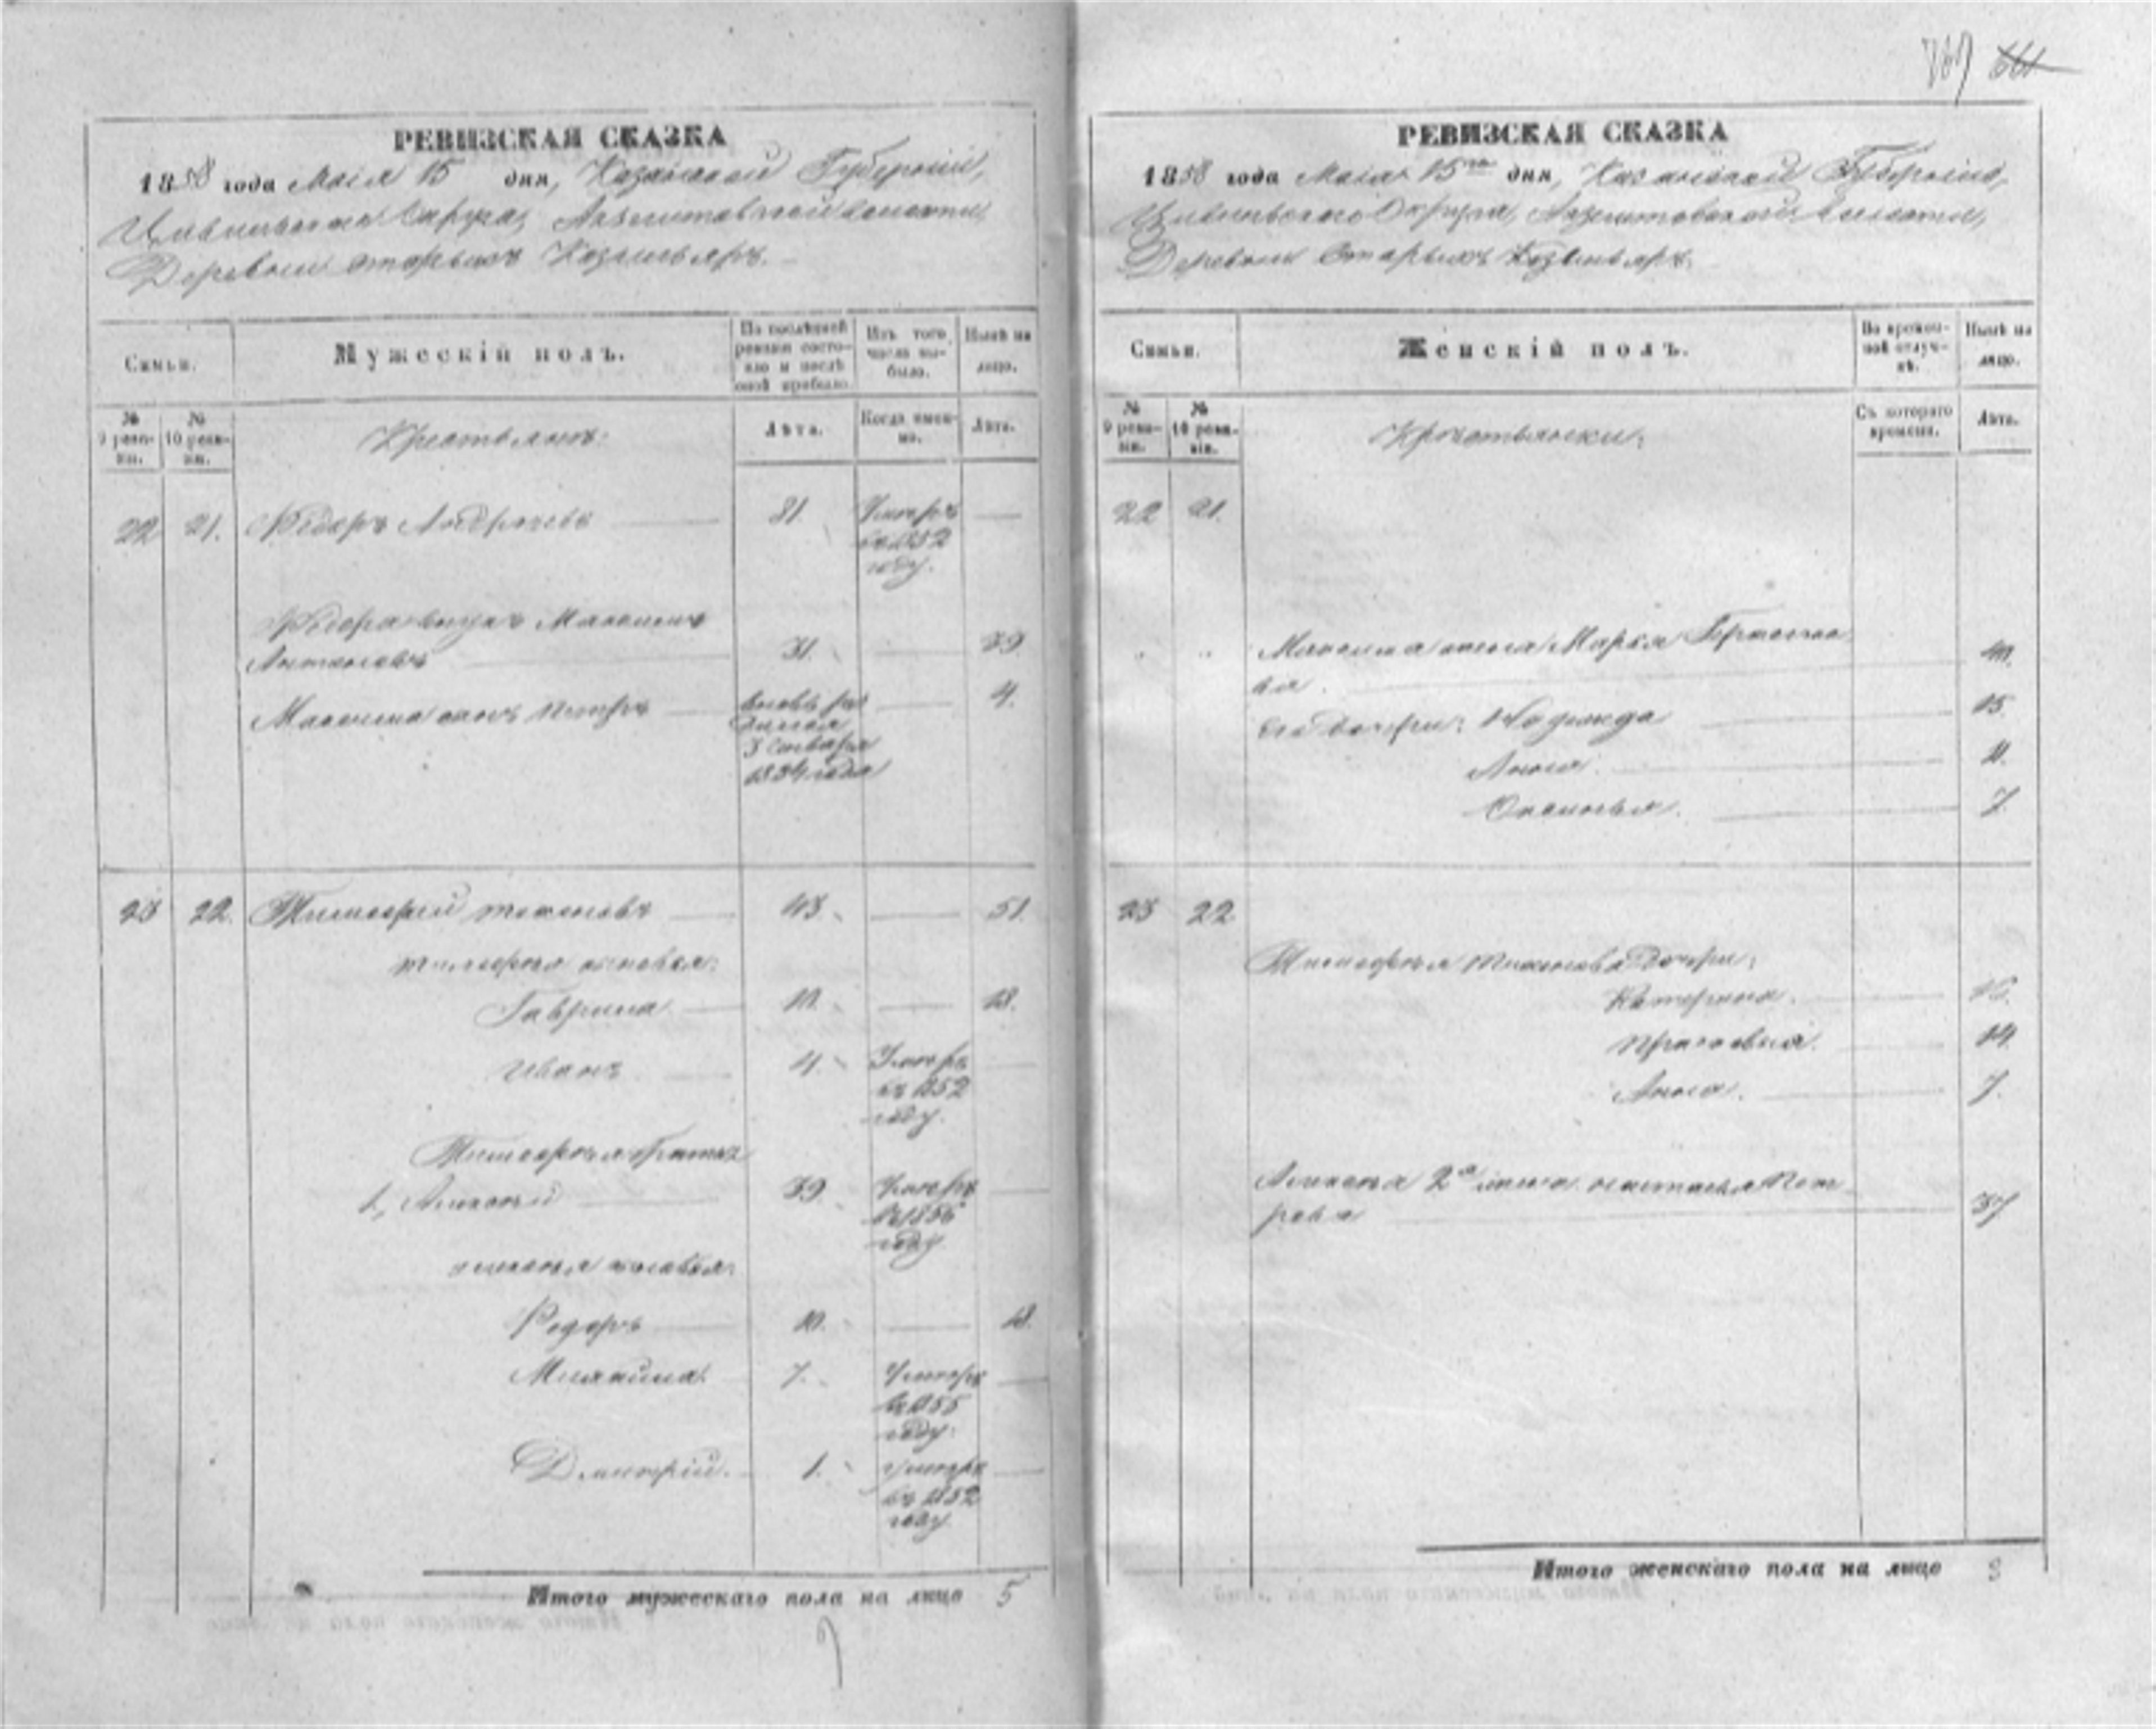 РЕВИЗСКАЯ СКАЗКА
1858 года Маія 15 дня, Казанской Губерніи,
Цивильскаго Округа, волости,
Деревни Старыхъ
Семьи.
Мужескій полъ.
По послѣдней ревизіи состояло и послѣ оной прибыло.
Изъ того числа выбыло.
Нынѣ на лицо.
№ 9 ревизіи.
№ 10 ревизіи.
Крестьяне:
Лѣта.
Когда именно.
Лѣта.
22 21. Ѳедоръ Андреевъ 81. Умеръ
въ 1852
году.
Ѳедора внукъ Максимъ
Антоновъ 31. 39.
Максима сынъ Петръ вновь ро 4.
дился
3 января
1854 года
23 22. Тимофей 43. 51.
Тимофея сыновья:
Гаврила 10. 18.
Иванъ 4. Умеръ
въ 1852
году.
Тимофея братья
1, Алексей 39. Умеръ
въ 1856
году
Алексея сыновья:
Ѳедоръ 10. 18.
Михайла 7. Умеръ
въ 1855
году.
Дмитрій. 1. Умеръ
въ 1852
году
Итого мужескаго пола на лицо 5
РЕВИЗСКАЯ СКАЗКА
1858 года Маія 15го дня, Казанской Губерніи,
Цивильскаго Округа, волости,
Деревни Старыхъ
Семьи.
Женскій полъ.
Во временной отлучкѣ.
Нынѣ на лицо.
№ 9 ревизіи.
№ 10 ревизіи.
Крестьянки:
Съ котораго времени.
Лѣта.
22 21.
Максима жена Марья 40.
ва.
Его дочери: Надежда 15.
Анна. 11.
7.
23 22
Тимофея дочери:
Катерина.
Прасковья. 14.
Анна. 7.
Алексея 2я жена Настасья Пет
рова 37
Итого женскаго пола на лицо 8